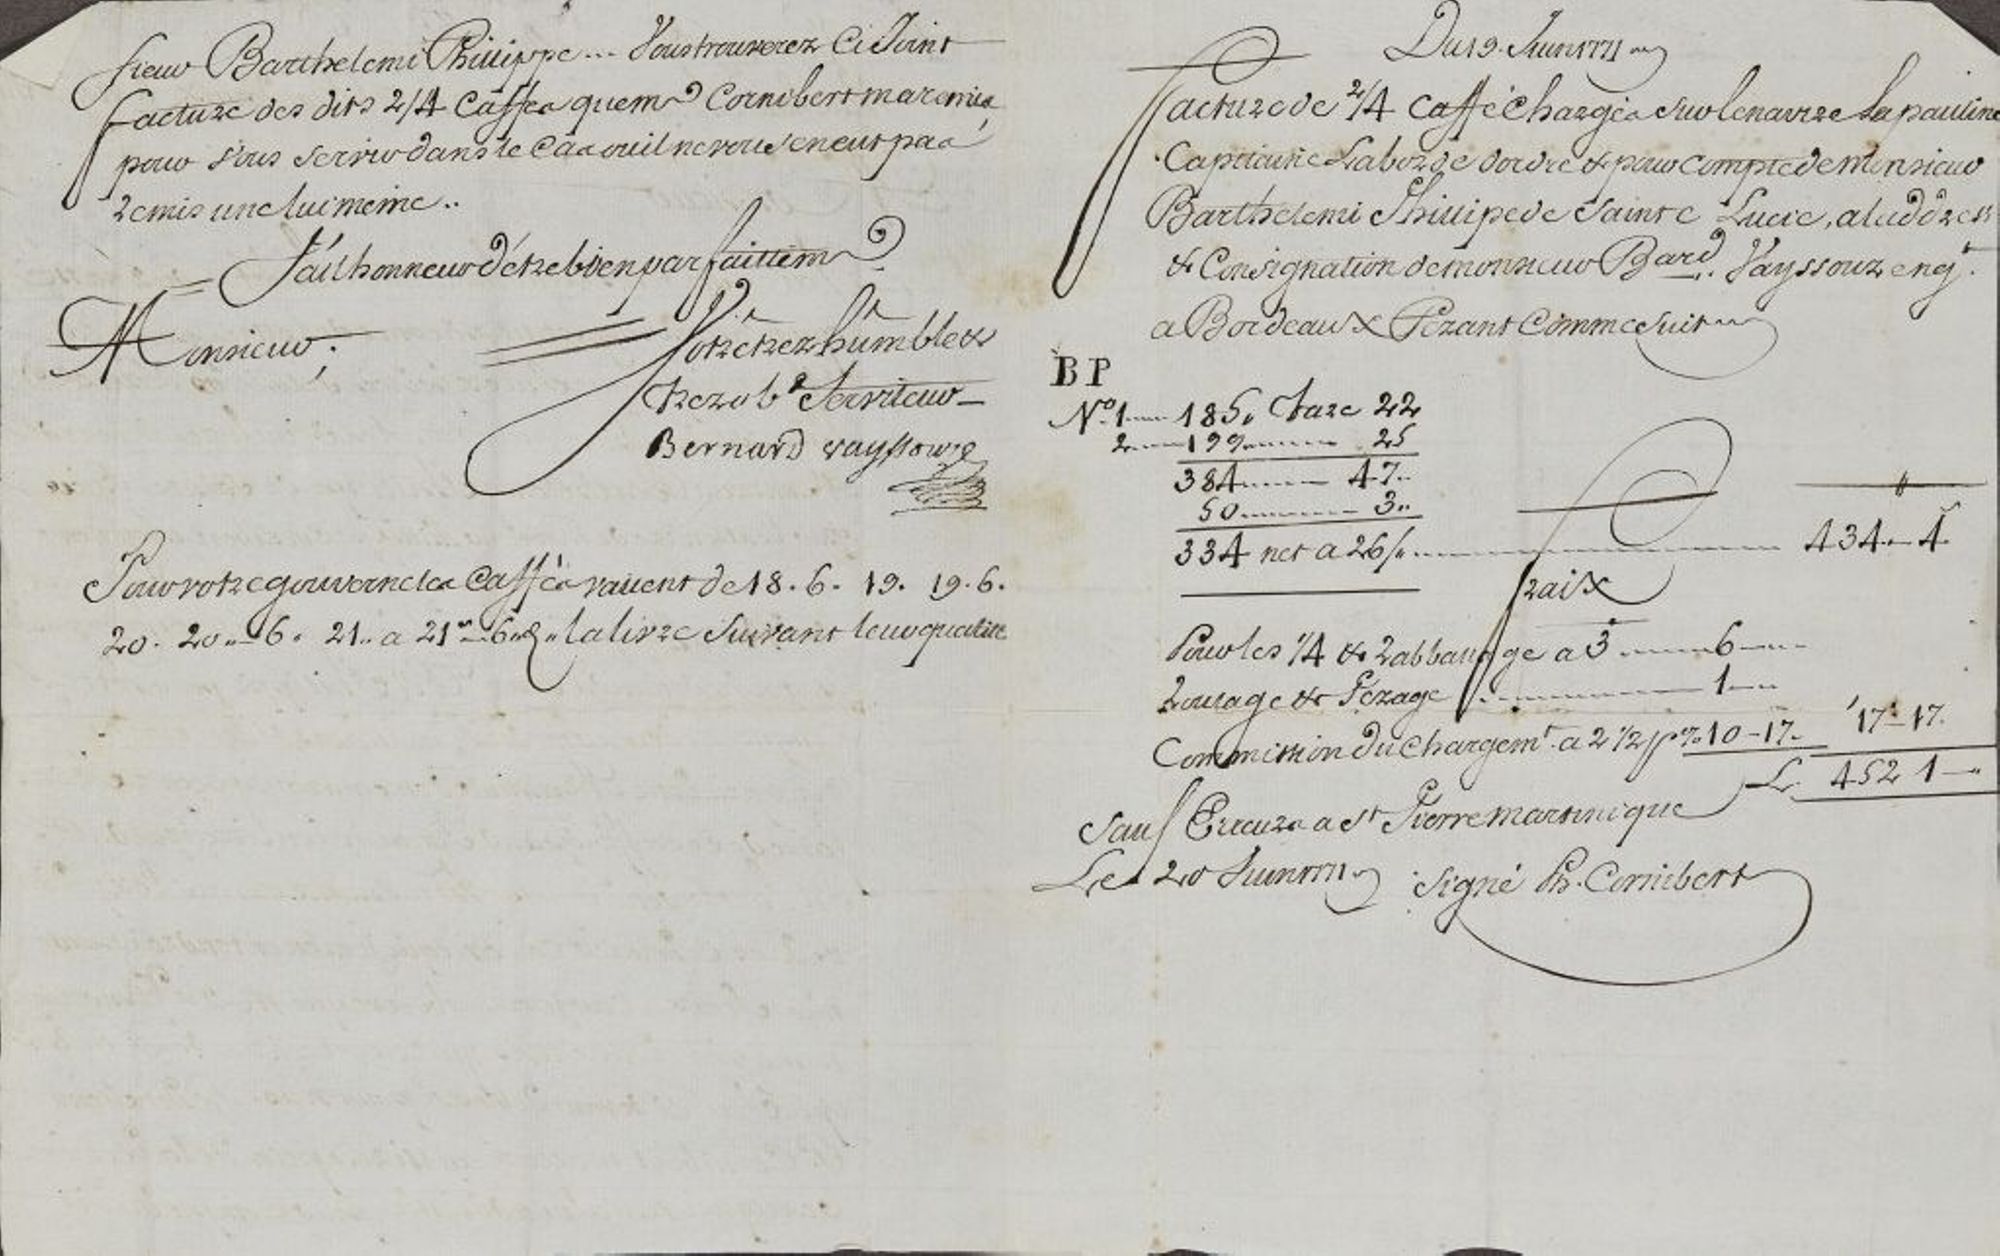 sieur Barthelemi Phillippe... Vous trouverez Ci Joint
facture des dits 2/4 Caffés que mr Cornibert ma remis,
pour vous servir dans le Cas ou il ne vous en eut pas
remis une lui meme..
J'ai lhonneur d'être bien parfaittemt
Monsieur;
Votre trez humble &
trez obt Serviteur
Bernard vayssouze
Pour votre gouverne les Caffés vallent de 18. 6. 19. 19. 6.
20. 20.. 6. 21.. a 21.. 6.. la livre suivant leur qualitee
Du 19. Juin 1771
Facture de 2/4 Caffé Chargés sur le navire La pauline
Capitaine Laborde dordre & pour compte de Monsieur
Barthelemi Phillipe de Sainte Lucie, a laddresse
& Consignation de monsieur Bard. Vayssouze negt.
a Bordeaux Pezant Comme suit
B P
No. 1 185. Tare 22
2 199 25
384 47..
50 3..
334 net a 26/.. 434..4
Fraix
Pour les 1/4 & rabbattage a 3 6
Roulage & Pézage 1
Commission du Chargemt. a 2 1/2 p% 10-17. 17-17.
L. 452 1
Sauf Erreurs a St Pierre Martinique
Le 20 Juin 1771 signé Ph. Cornibert